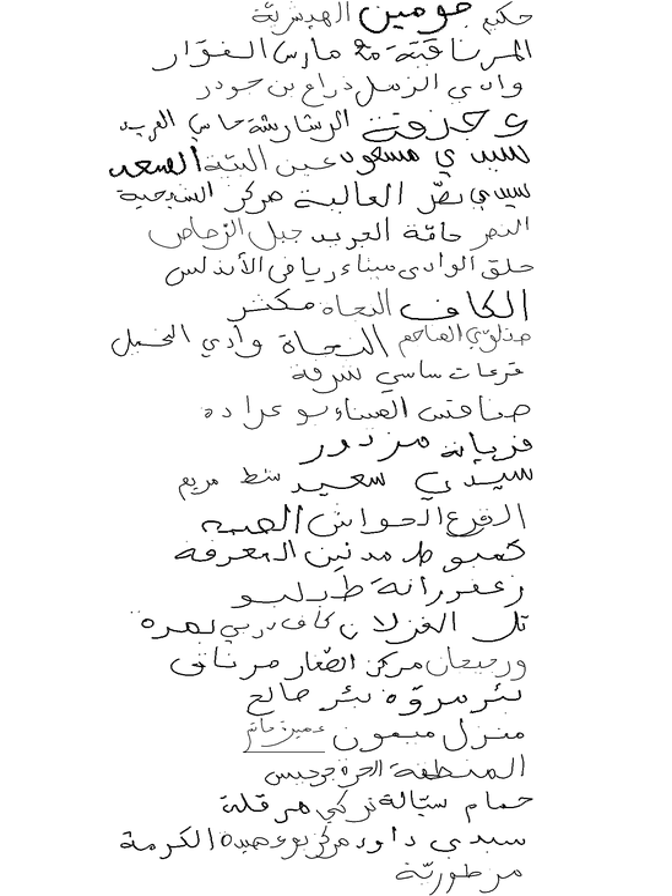 حكيم جومين الهيشرية
المرناقية 20 مارس الفوّار
وادي الرمل ذراع بن جودر
وخزقة الرشارشة حاسي الفريد
سيدي مسعود عين البنية السعد
سيدي نصّر العالية مركز الشيحية
النصر حامّة الجريد جبل الرّصاص
حلق الوادي ميناء رياض الأندلس
الكاف النجاة مكثر
المناجم النجاة وادي النخيل
قرعات ساسي شرفة
صفاقس الميناء بو عرادة
فريانة مزدور
سيدي سعيد شط مريم
القرع الحواش
كمبوط مدنين المعرفة
زعفرانة طبلبو
تل الغزلان كاف دربي نصرة
ورجيعان مركز الصّغار مرناق
بئر مروّة بئر صالح
منزل ميمون
المنطقة الحرة جرجيس
حمام سيّالة تركي هرقلة
سيدي داود مركز بوعصيدة الكرمة
مرطوريّة